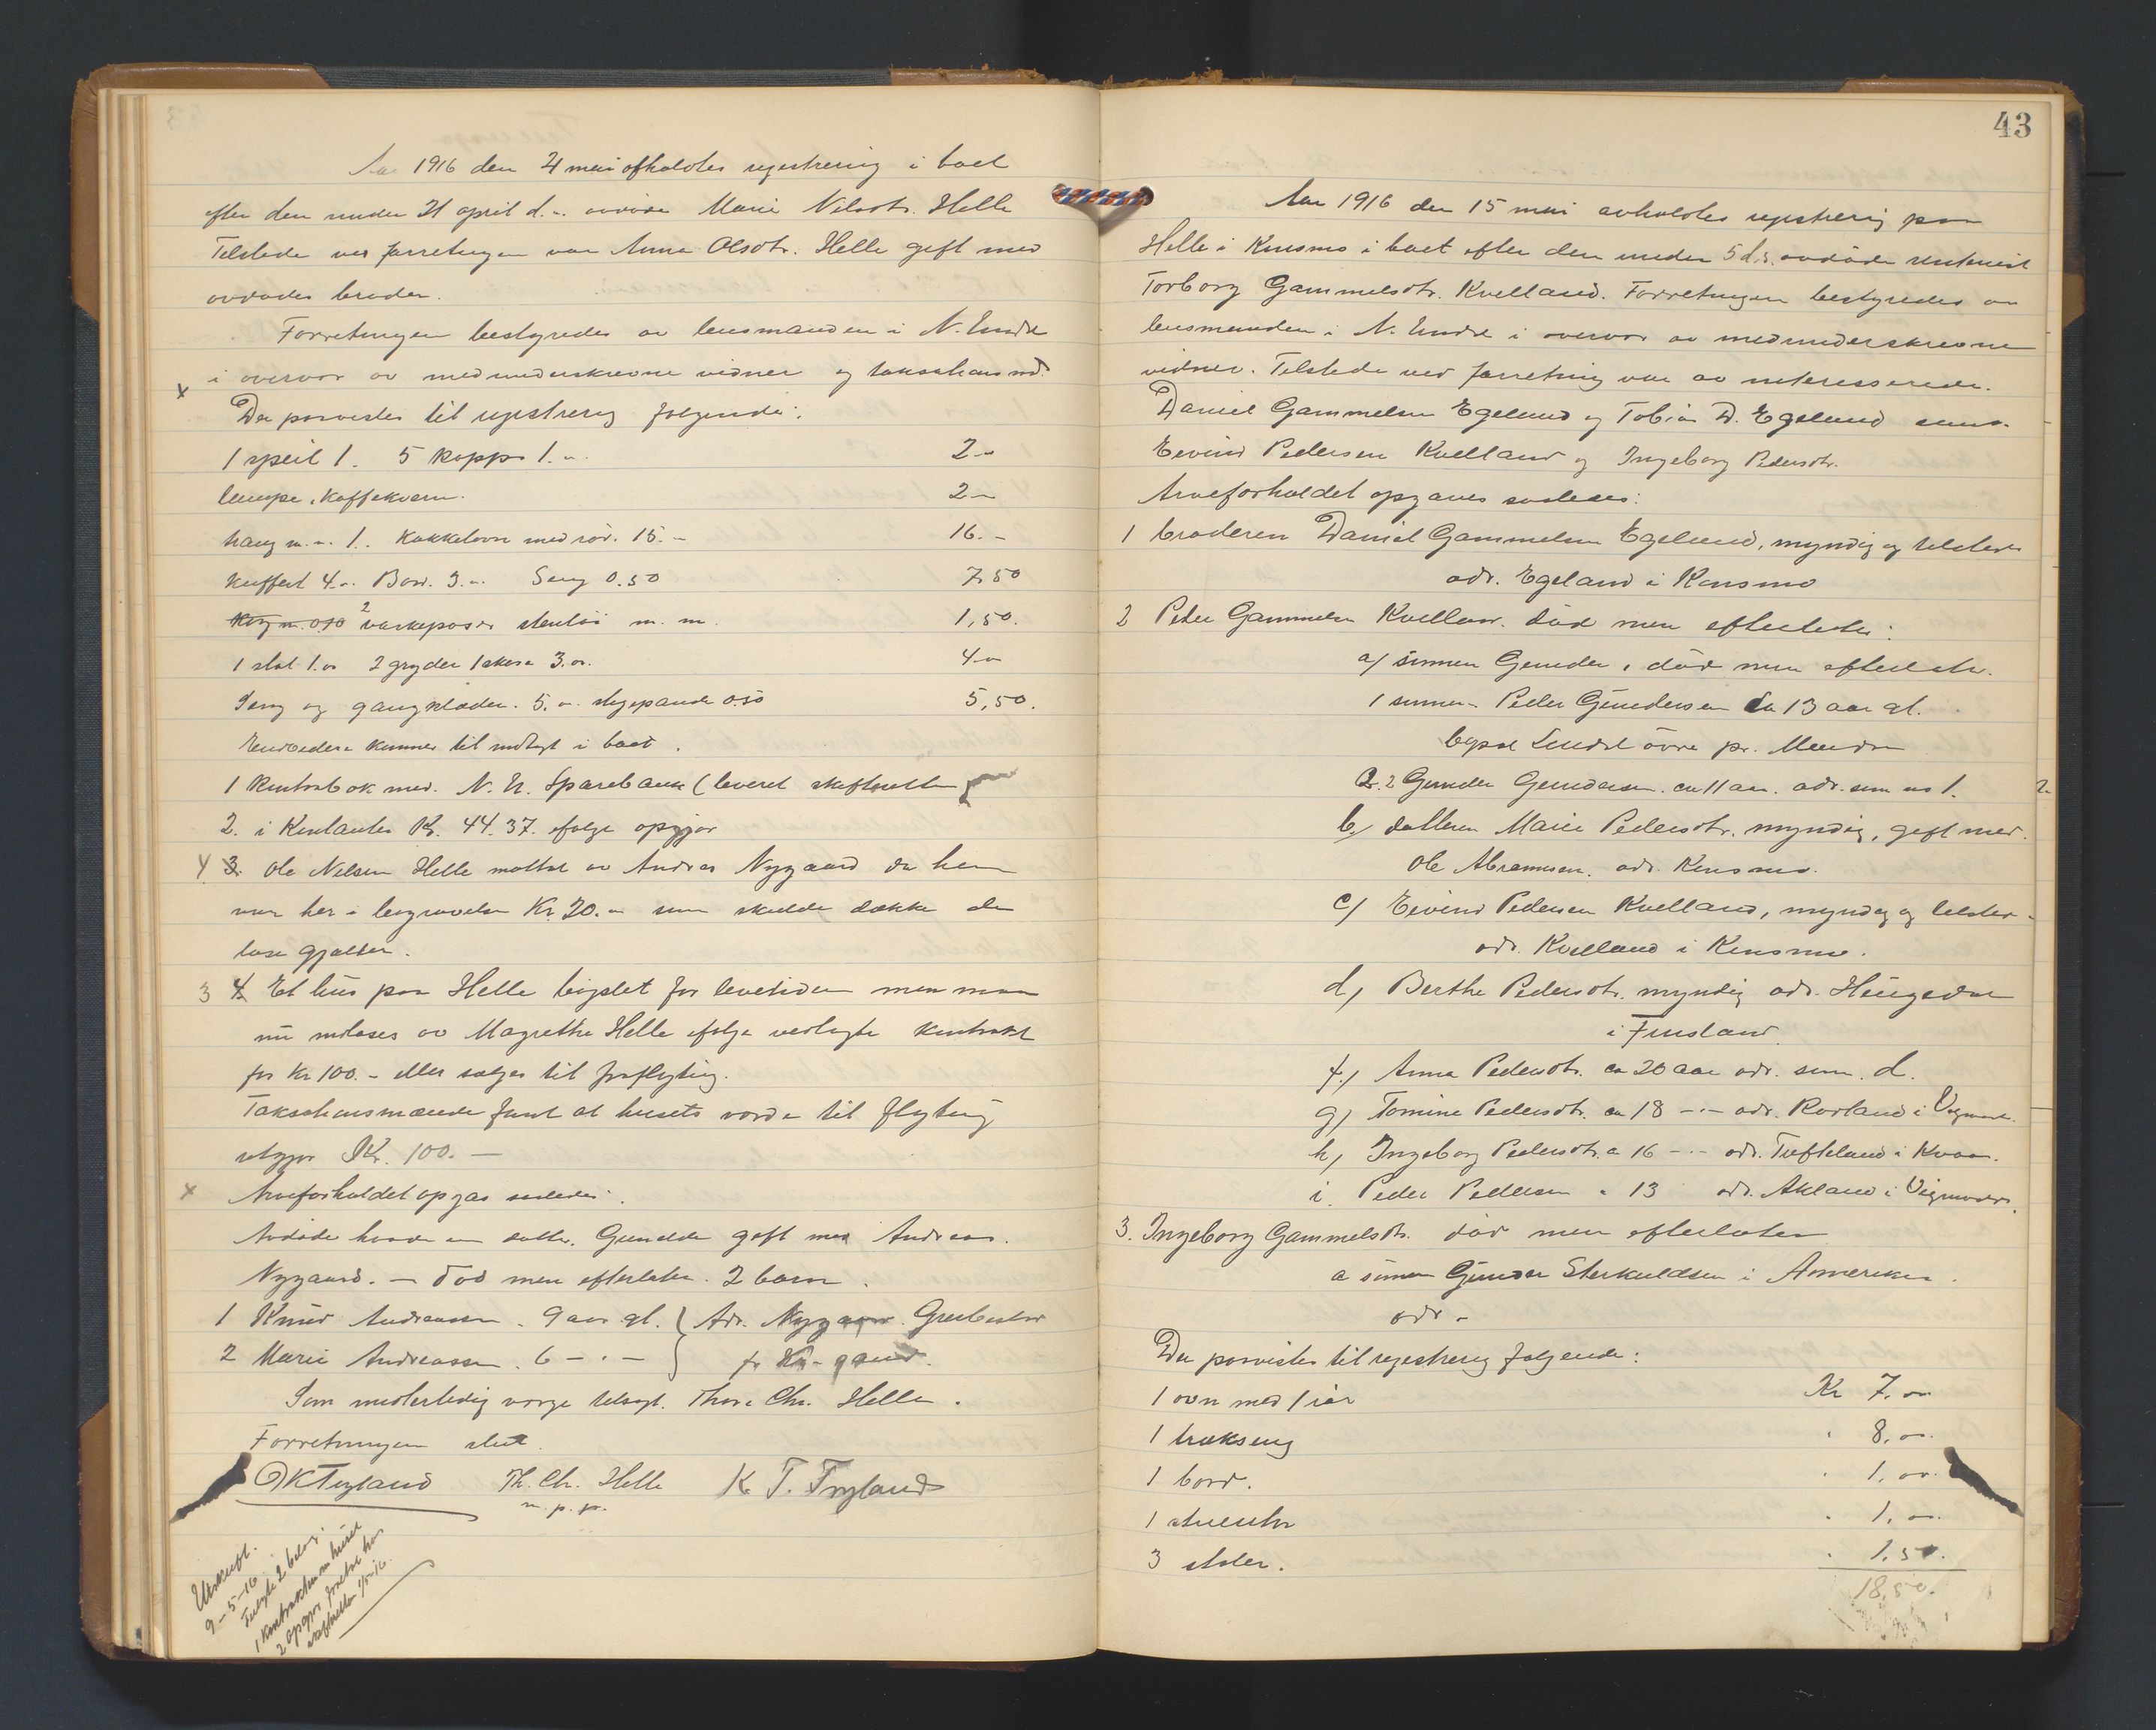 Aar 1916 den 4 mai afholdtes regestrering i boet
efter den under 21 april d. a. avdøde Marie Nilsdtr. Helle
Tilstede ved forretningen var Anna Olsdtr. Helle gift med
avdødes broder.
Forretningen bestyredes av lensmanden i N. Undal
i overvær av medunderskrevne vidner og takstsmænd.
Der paavistes til regestrering følgende:
1 speil 1. 5 kopper 1.-
2.-
lampe, kaffekvern.
2.-
m. m. 1.. Kakkelovn med rør. 15.-
16.-
Kuffert 4.- Bord. 3.- Seng 0.50
7,50
2 stentøi m. m.
1,50.
1 stol 1.00 2 gryder 1 3.00
4.00
Seng og gangklæder. 5.00 stegepande 0.50
5,50.
Endvidere kunner til indtægt i boet.
1 Kontrabok med. N. U. Sparebank (leveret skifteretten
2. i Kontanter Kr. 44.37. ifølge opgjør
4 3. Ole Nilsen Helle mottat av Andreas Nygaard da han
var her i begravelse Kr. 20.00 som skulde dække den
løse gjælden.
3 4. Et hus paa Helle bygslet for levetiden men maa
nu indløses av Magrethe Helle ifølge vedlagte kontrakt
for Kr 100.- eller sælges til fraflytning.
Takstsmændene fant at husets værdi til flytning
utgjør Kr. 100.-
x Arveforholdet opgas saaledes:
Avdøde havde en datter. Gunelde gift med Andreas
Nygaard. - Død men efterlater. 2 barn.
1 Knud Andreassen. 9 aar gl. } Adr. Nygaard.
2 Marie Andreassen. 6 - " -
Som midlertidig værge Thore Chr. Helle.
Forretningen slut.
OKTryland Th. Chr. Helle K T. Tryland
m. p. p.
Utskrift.
9-5-16
Fulgte 2 bilag:
1 Kontrakten om huset
2 opgjør
skifteretten
43
Aar 1916 den 15 mai avholdtes regestrering paa
Helle i Konsmo i boet efter den under 5 d. m. avdøde
Torborg Gammelsdtr. Kvelland. Forretningen bestyredes av
lensmanden i N. Undal i overvær av medunderskrevne
vidner. Tilstede ved forretning var av interesserede.
Daniel Gammelsen Egeland og Tobias D. Egeland samt
Eivind Pedersen Kvelland og Ingeborg Pedersdtr.
Arveforholdet opgaves saaledes:
1 broderen Daniel Gammelsen Egeland, myndig og tilstede
adr. Egeland i Konsmo
2 Peder Gammelsen Kvelland. død men efterlater:
a) sønnen Gunder, død men efterlater.
1 sønnen Peder Gundersen ca 13 aar gl.
øvre pr. Mandal
2 Gunder Gundersen. ca 11 aar. adr. som no 1.
b) datteren Marie Pedersdtr. myndig, gift med.
Ole Abramsen. adr. Konsmo.
c) Eivind Pedersen Kvelland, myndig og tilstede
adr. Kvelland i Konsmo.
d) Berthe Pedersdtr. myndig adr.
i Finsland
f.) Anna Pedersdtr. ca 20 aar adr. som. d.
g) Tomine Pedersdtr. ca 18 -"- adr. i
h) Ingeborg Pedersdtr. ca 16 -"- adr. Tufteland i
i. Peder Pedersen " 13 adr. Akland i
3. Ingeborg Gammelsdtr. død men efterlater
a sønnen Gunder i Amerika.
adr -
Der paavistes til regestrering følgende:
1 ovn med 1 rør
Kr 7.00
1 trækseng
" 8.00
1 bord.
" 1.00.
1 stueuhr
" 1.00.
3 stoler.
" 1.50.
18.50.